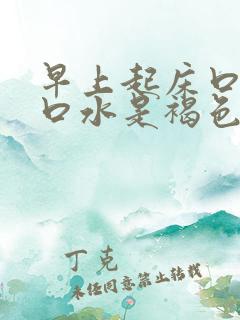 早上起床口
口水是褐色
丁克
未经同意禁止转载